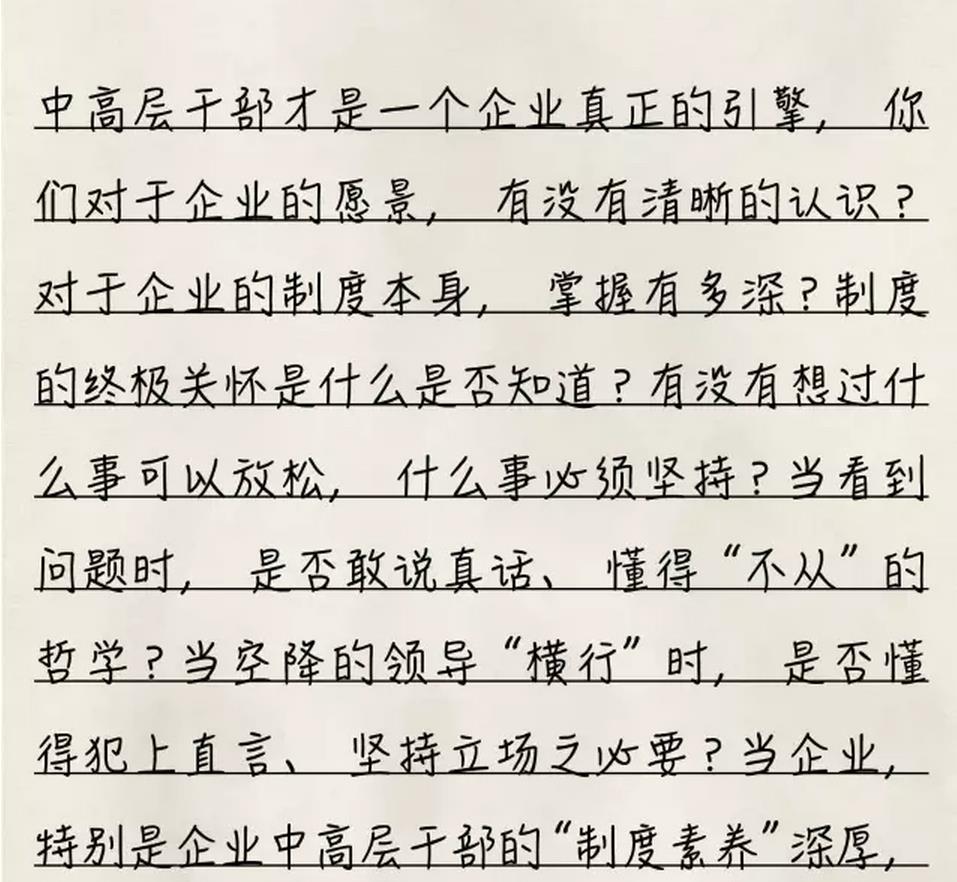 中高层干部才是一个企业真正的引擎, 你
们对于企业的愿景, 有没有清晰的认识?
对于企业的制度本身, 掌握有多深?制度
的终极关怀是什么是否知道?有没有想过什
么事可以放松, 什么事必须坚持?当看到
问题时, 是否敢说真话、 懂得“不从”的
哲学?当空降的领导“横行”时, 是否懂
得犯上直言、 坚持立场之必要?当企业,
特别是企业中高层干部的“制度素养”深厚,